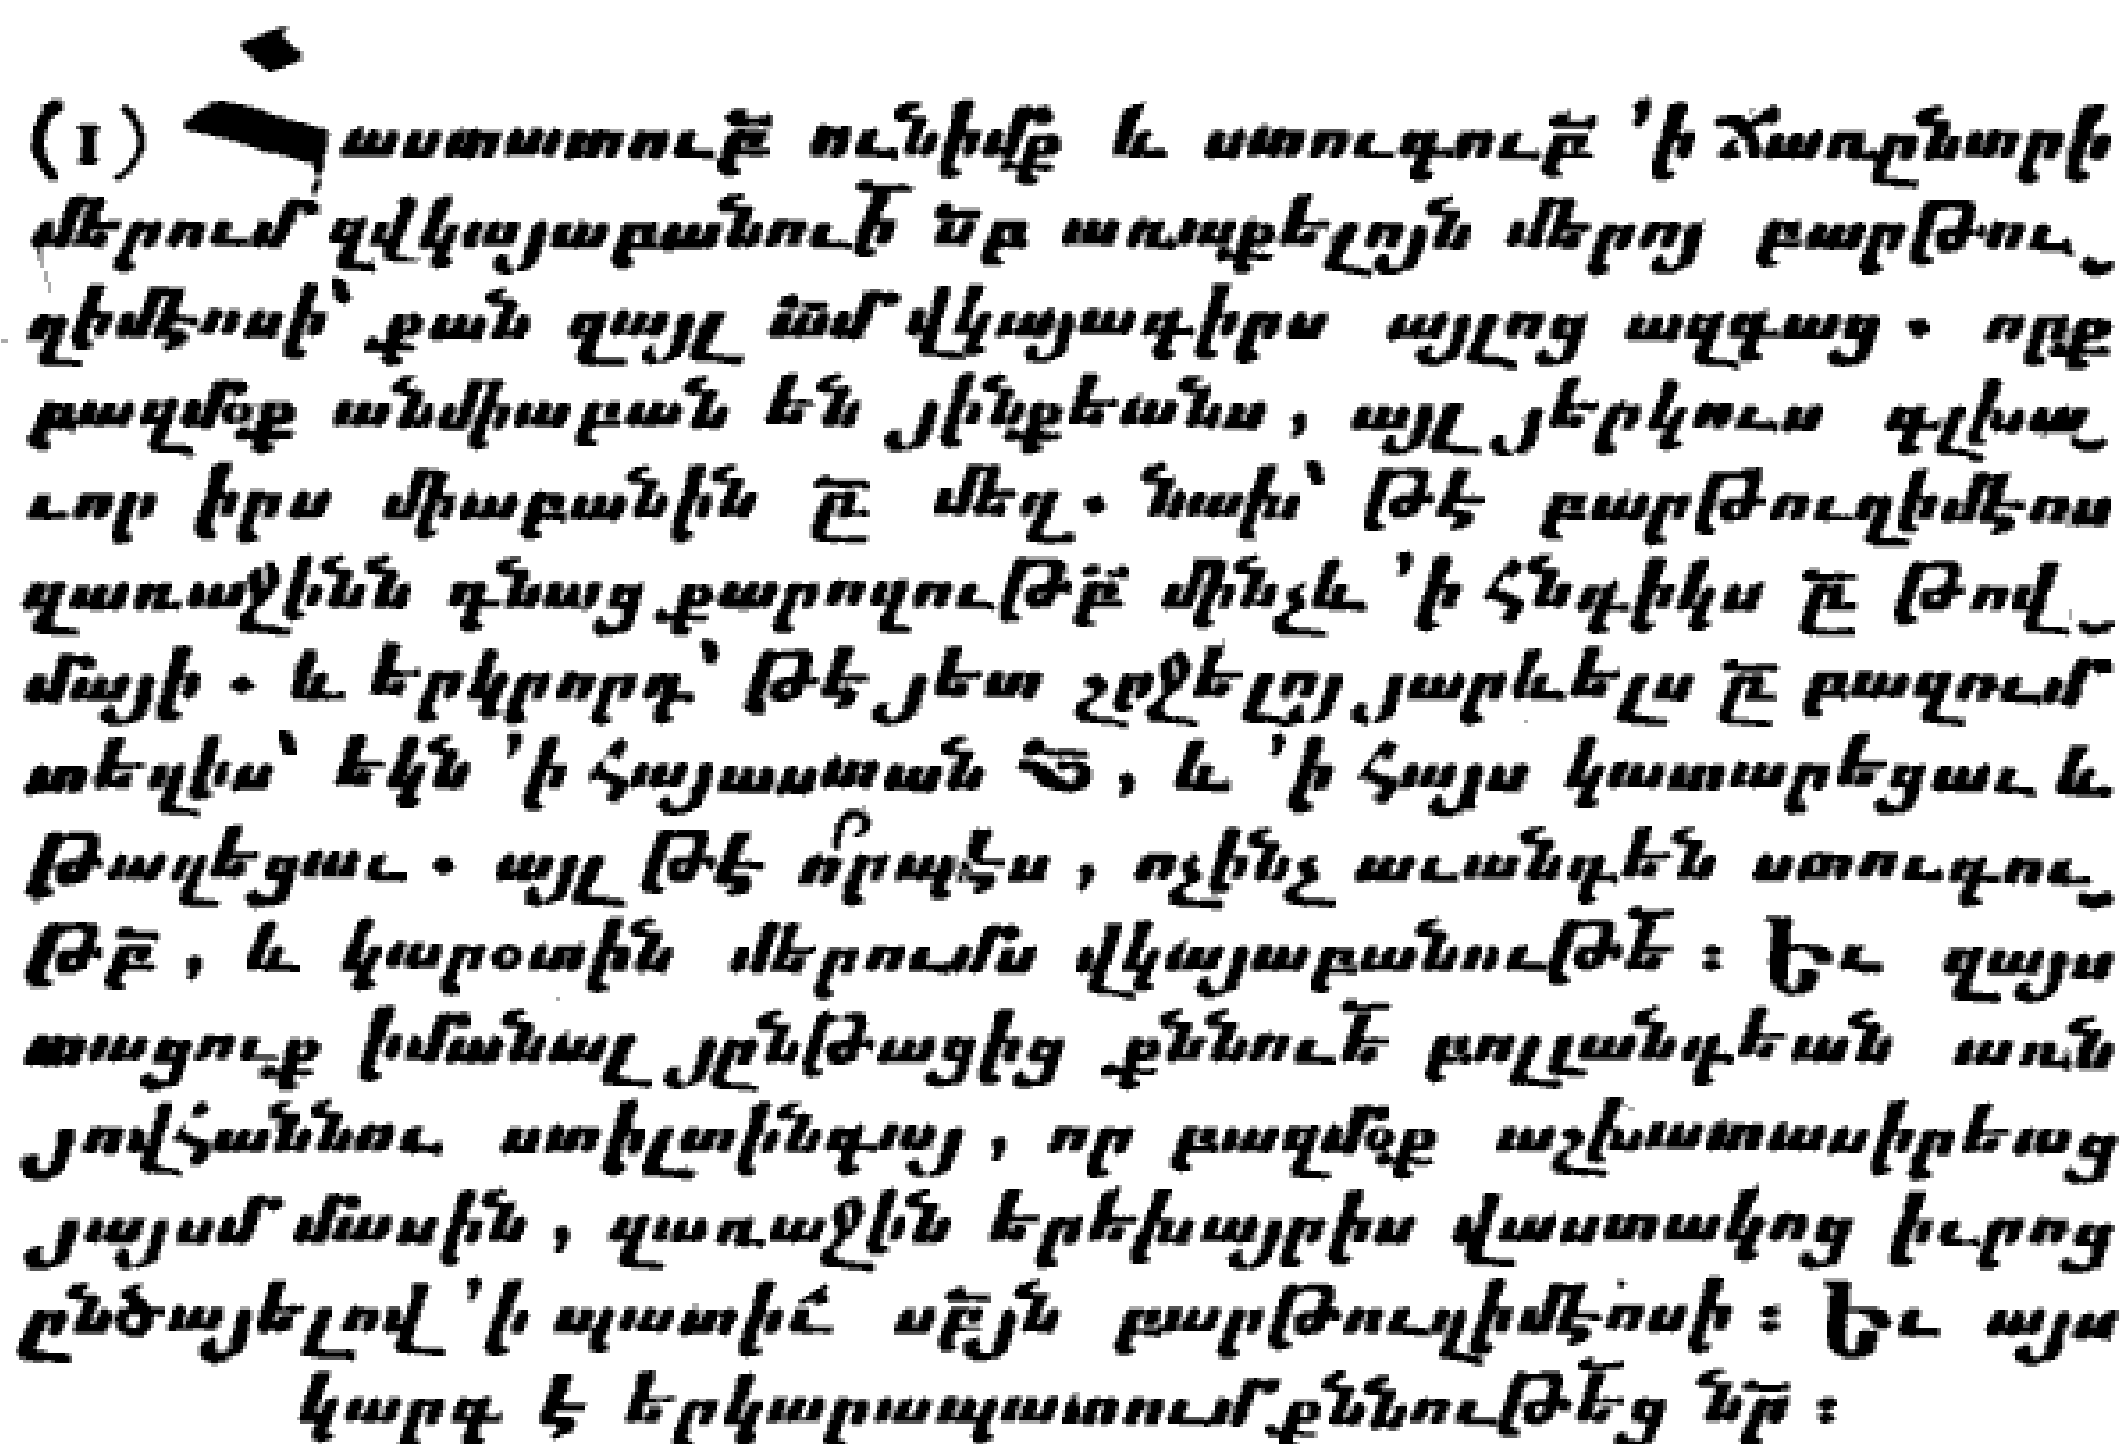 (1) աստատուբ̅ ունիմք և ստուգուբ̅ ՚ի Ճառընտրի
մերում զվկայաբանուի̅ ն̅ր առաքելոյն մերոյ բարթու֊
ղիմէոսի՝ քան զայլ ա̅մ վկայագիրս այլոց ազգաց. որք
բազմօք անմիաբան են յինքեանս, այլ յերկուս գլխա֊
ւոր իրս միաբանին ը̅ մեզ. նախ՝ թէ բարթուղիմէոս
զառաջինն գնաց քարոզութբ̅ մինչև ՚ի Հնդիկս ը̅ թով֊
մայի. և երկրորդ՝ թէ յետ շրջելոյ յարևելս ը̅ բազում
տեղիս՝ եկն ՚ի Հայաստան, և ՚ի Հայս կատարեցաւ և
թաղեցաւ. այլ թէ ո՞րպէս, ոչինչ աւանդեն ստուգու֊
թբ̅, և կարօտին մերումս վկայաբանութե̅: Եւ զայս
տացուք իմանալ յընթացից քննուե̅ բոլլանդեան առն
յովՀաննու ստիլտինգայ, որ բազմօք աշխատասիրեաց
յայսմ մասին, զառաջին երեխայրիս վաստակոց իւրոց
ընծայելով ՚ի պատիւ̅ սբ̅յն բարթուղիմէոսի: Եւ այս
կարգ է երկարապատում քննութե̅ց ն̅ր: